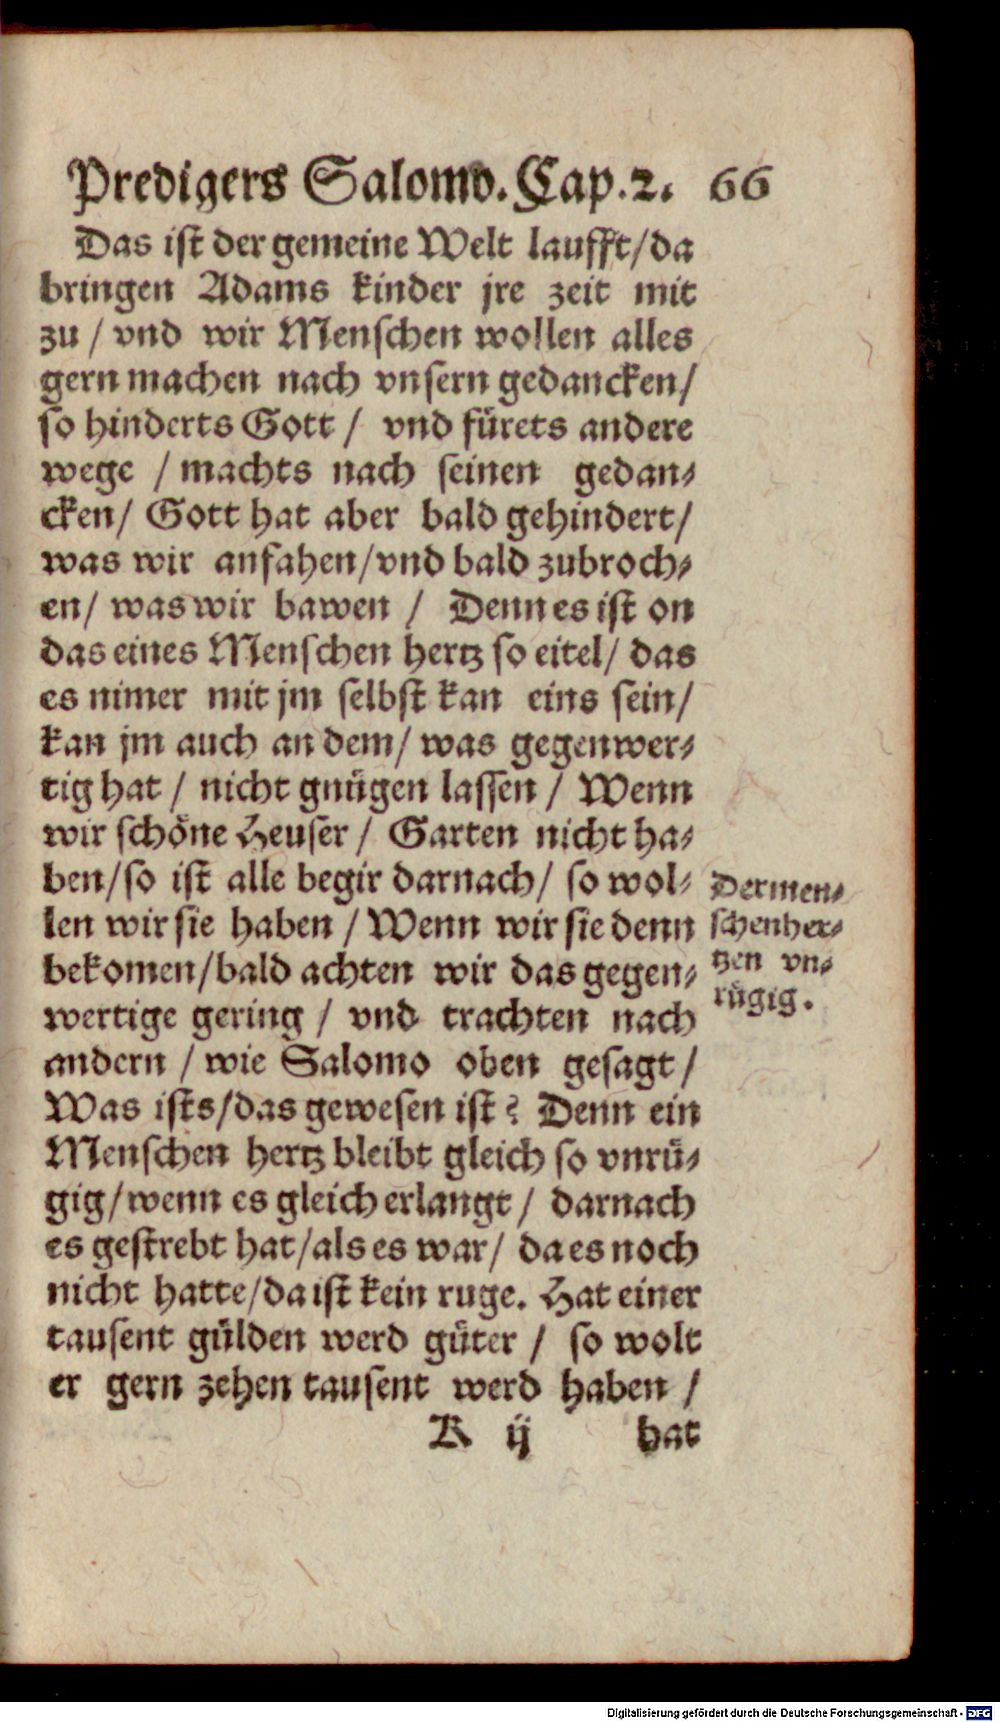 Predigers Salomo. Cap. 2. 66
Das ist der gemeine Welt laufft/da
bringen Adams kinder jre zeit mit
zu / vnd wir Menschen wollen alles
gern machen nach vnsern gedancken/
so hinderts Gott / vnd fürets andere
wege / machts nach seinen gedan⸗
cken/ Gott hat aber bald gehindert/
was wir anfahen/vnd bald zubroch⸗
en/ was wir bawen / Denn es ist on
das eines Menschen hertz so eitel/ das
es nimer mit jm selbst kan eins sein/
kan jm auch an dem/ was gegenwer⸗
tig hat / nicht gnügen lassen / Wenn
wir schöne Heuser / Garten nicht ha⸗
ben/so ist alle begir darnach/ so wol⸗
len wir sie haben / Wenn wir sie denn
bekomen/bald achten wir das gegen⸗
wertige gering / vnd trachten nach
andern / wie Salomo oben gesagt /
Was ists/das gewesen ist? Denn ein
Menschen hertz bleibt gleich so vnrü⸗
gig/wenn es gleich erlangt / darnach
es gestrebt hat/als es war/ da es noch
nicht hatte/da ist kein ruge. Hat einer
tausent gülden werd güter / so wolt
er gern zehen tausent werd haben /
K ij hat
Der men⸗
schen her⸗
tzen vn⸗
rügig.
Digitalisierung gefördert durch die Deutsche Forschungsgemeinschaft - DFG